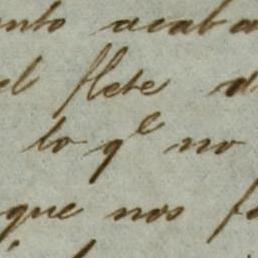 ento acaba
el flete d
lo q^e no
que nos fa